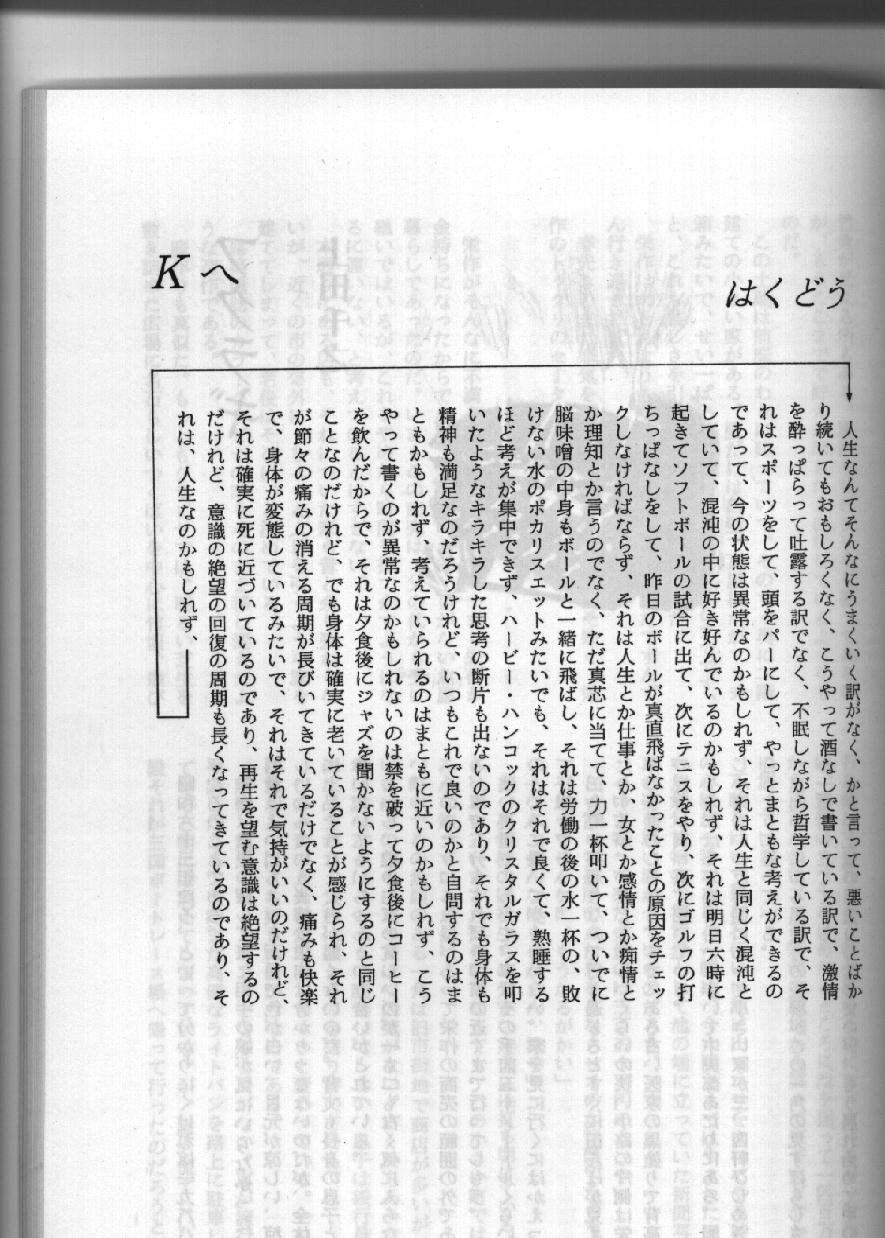 はくどう
人生なんてそんなにうまくいく訳がなく、かと言って、悪いことばか
り続いてもおもしろくなく、こうやって酒なしで書いている訳で、激情
を酔っぱらって吐露する訳でなく、不眠しながら哲学している訳で、そ
れはスポーツをして、頭をパーにして、やっとまともな考えができるの
であって、今の状態は異常なのかもしれず、それは人生と同じく混沌と
していて、混沌の中に好き好んでいるのかもしれず、それは明日六時に
起きてソフトボールの試合に出て、次にテニスをやり、次にゴルフの打
ちっぱなしをして、昨日のボールが真直飛ばなかったことの原因をチェッ
クしなければならず、それは人生とか仕事とか、女とか感情とか痴情と
か理知とか言うのでなく、ただ真芯に当てて、力一杯叩いて、ついでに
脳味噌の中身もボールと一緒に飛ばし、それは労働の後の水一杯の、敗
けない水のポカリスエットみたいでも、それはそれで良くて、熟睡する
ほど考えが集中できず、ハービー・ハンコックのクリスタルガラスを叩
いたようなキラキラした思考の断片も出ないのであり、それでも身体も
精神も満足なのだろうけれど、いつもこれで良いのかと自問するのはま
ともかもしれず、考えていられるのはまともに近いのかもしれず、こう
やって書くのが異常なのかもしれないのは禁を破って夕食後にコーヒー
を飲んだからで、それは夕食後にジャズを聞かないようにするのと同じ
ことなのだけれど、でも身体は確実に老いていることが感じられ、それ
が節々の痛みの消える周期が長びいてきているだけでなく、痛みも快楽
で、身体が変態しているみたいで、それはそれで気持がいいのだけれど、
それは確実に死に近づいているのであり、再生を望む意識は絶望するの
だけれど、意識の絶望の回復の周期も長くなってきているのであり、そ
れは、人生なのかもしれず、
Kへ